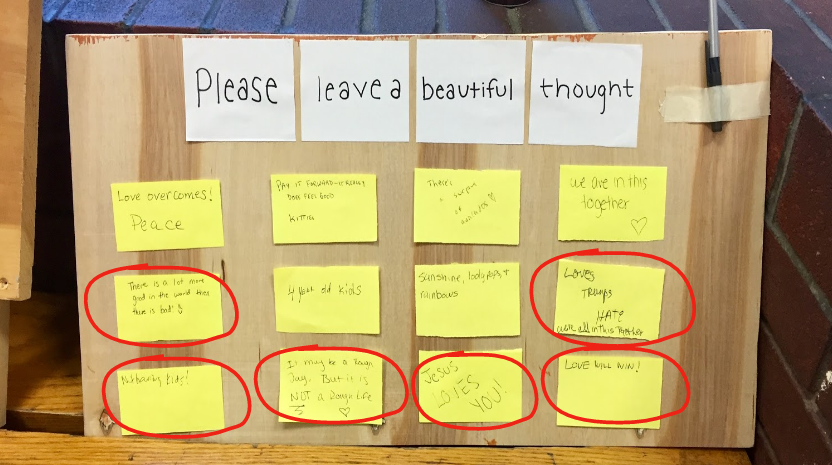 Please leave a beautiful thought
Love overcomes!
Peace
PAY IT FORWARD-IT REALLY
DOES FEEL GOOD
There's
a
of
We are in this
together
There is a lot more
good in the world then
there is bad
4 year old kids
Sunshine, lollypops, +
rainbows
LOVES
TRUMPS
HATE
we're all in this together
Not having kids!
It may be a Rough
Day, But it is
NOT a Rough Life
Jesus
LOVES
YOU!!
LOVE WILL WIN!